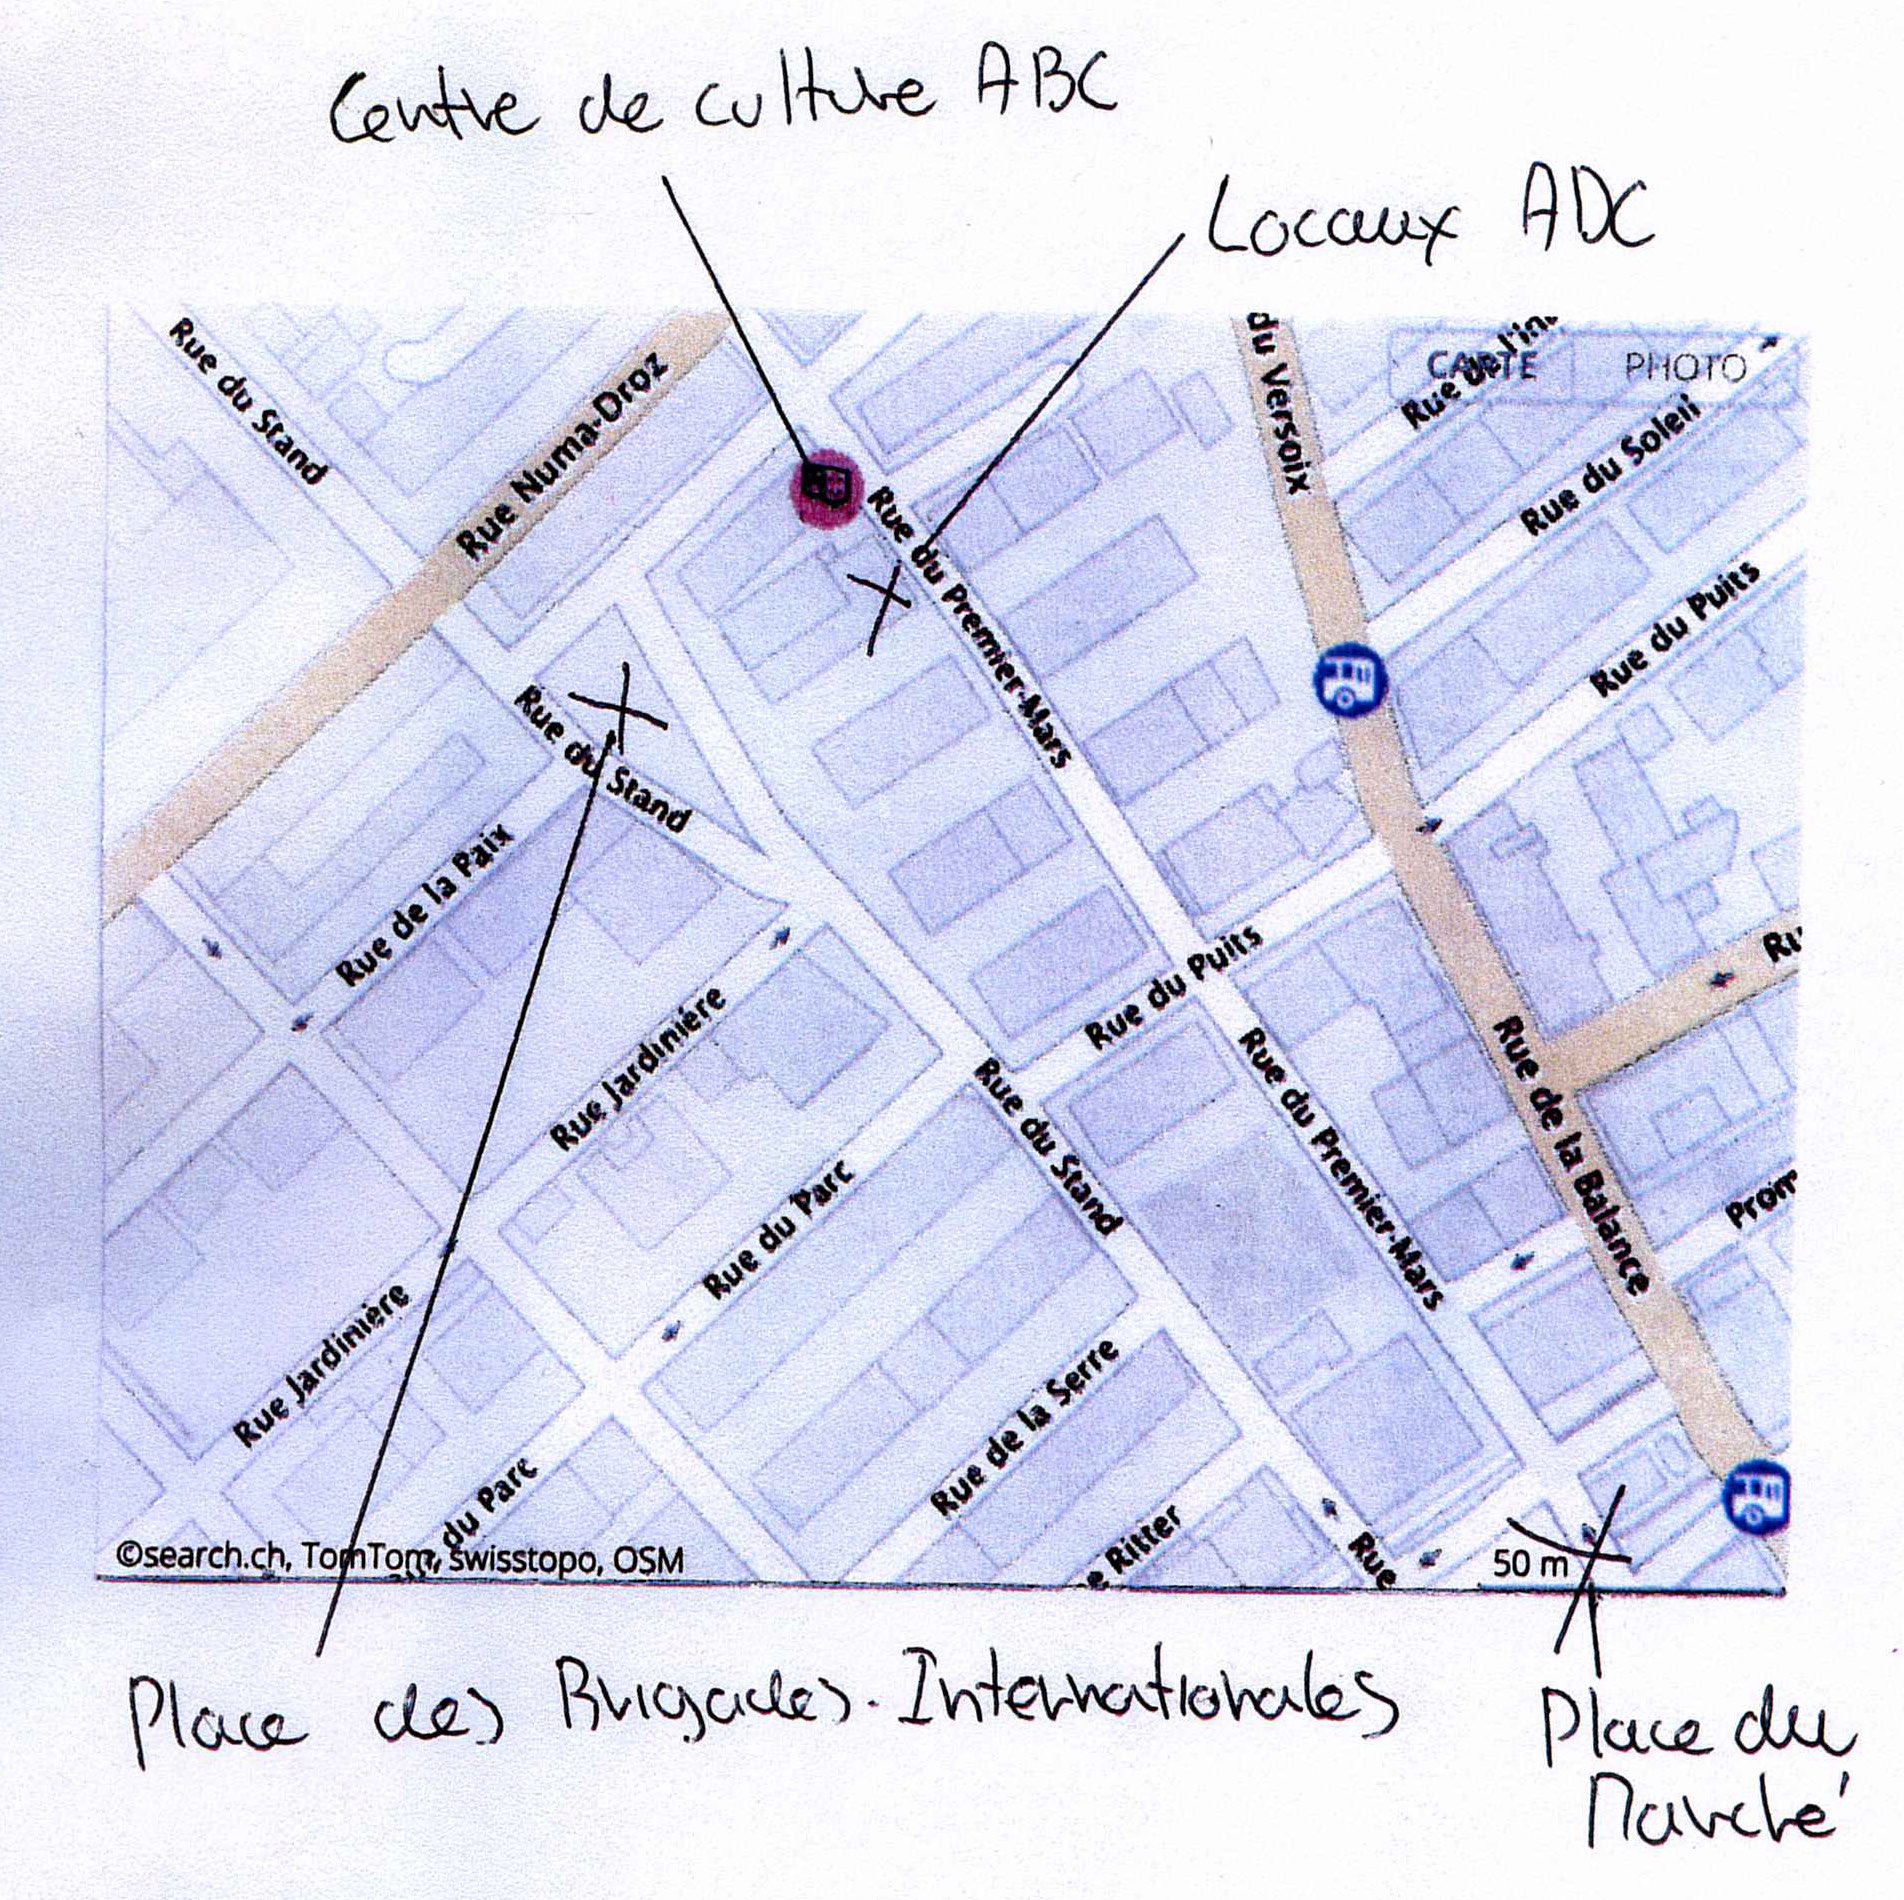 Centre de culture ABC
Locaux ADC
Rue du Stand
Rue Numa-Droz
du Versoix
CARTE
PHOTO
Rue de l'in
Rue du Soleil
Rue du Premier-Mars
Rue du Puits
Rue du Stand
Rue de la Paix
Rue du Puits
Ru
Rue Jardinière
Rue du Stand
Rue du Premier-Mars
Rue de la Balance
Rue du Parc
Prom
Rue Jardinière
Rue de la Serre
du Parc
e Ritter
Rue
50 m
©search.ch, TomTom, swisstopo, OSM
Place des Brigades-Internationales
Place du
Marché